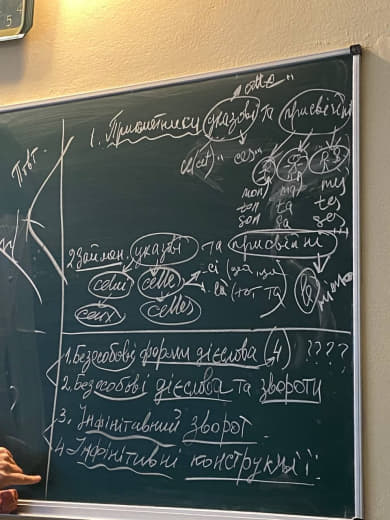 „cette"
1. Прикметники указові та присвійні
ce(cet)" ces"
mon ma mes
ton ta tes
son sa ses
2 Займен. указові та присвійні
celui celle -ci
ceux celles -là (тот та
1. Безособові форми дієслова (4) ????
2. Безособові дієслова та звороти
3. Інфінітивний зворот.
4. Інфінітивні конструкції.
Повт.